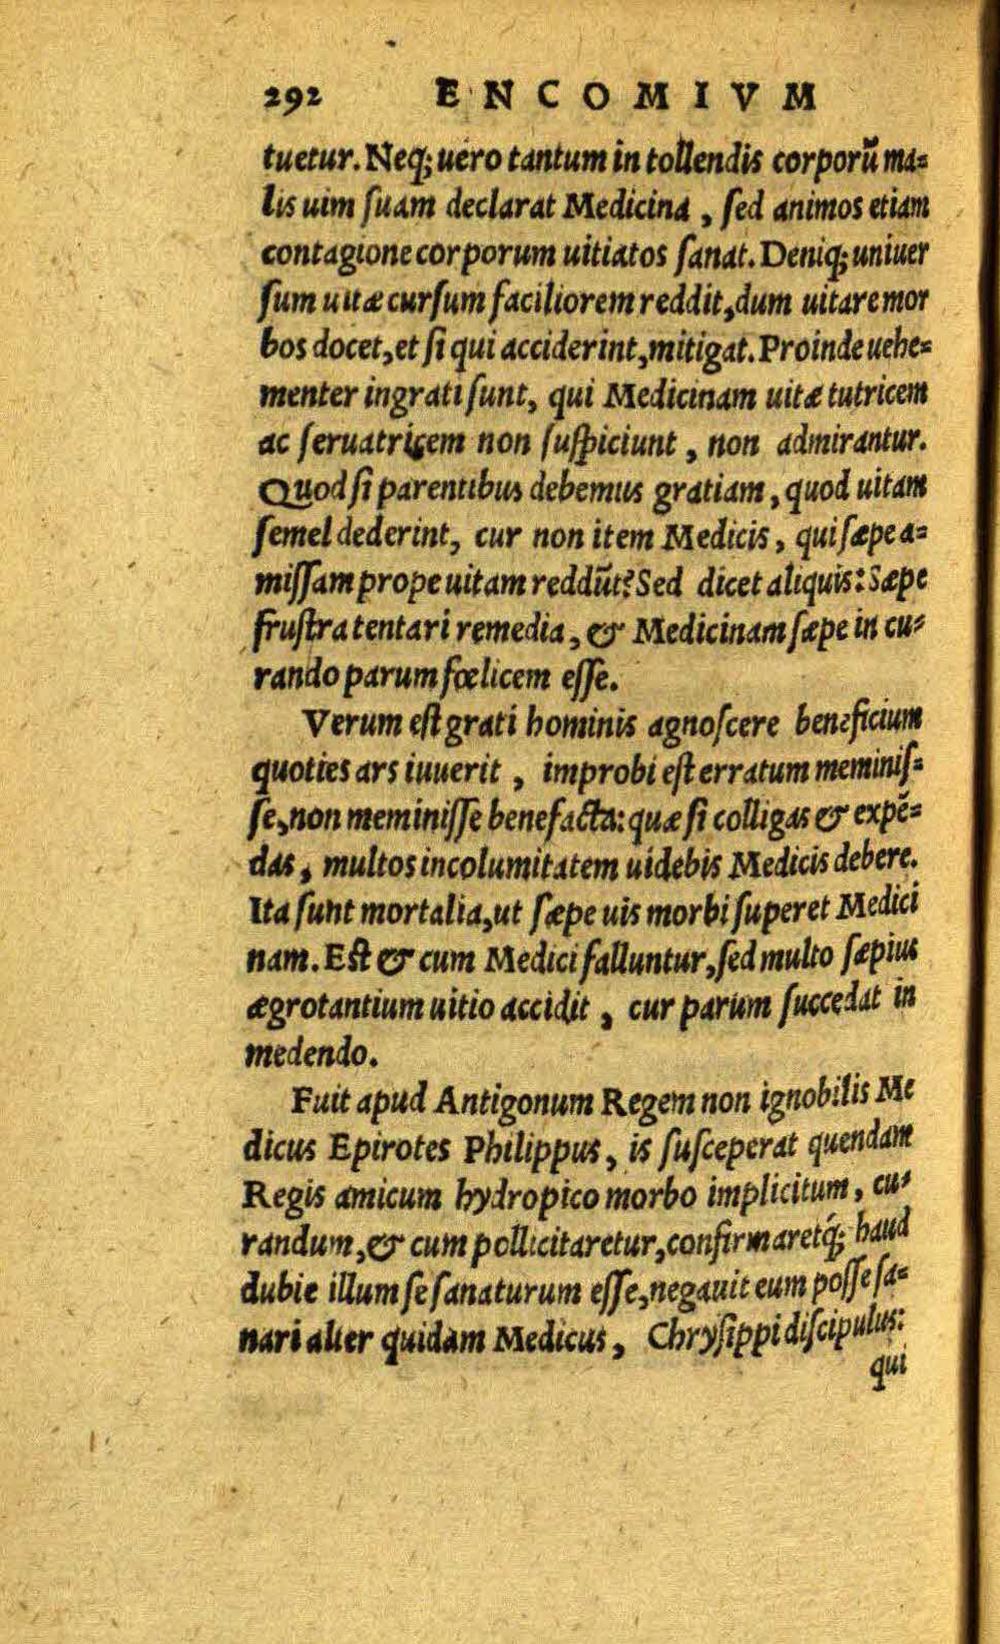 292 ENCOMIVM
tuetur. Neq; uero tantum in tollendis corporũ ma=
lis uim ſuam declarat Medicina, ſed animos etiam
contagione corporum uitiatos ſanat. Deniq; uniuer
ſum uitæ curſum faciliorem reddit, dum uitare mor
bos docet, et ſi qui acciderint, mitigat. Proinde uehe=
menter ingrati ſunt, qui Medicinam uitæ tutricem
ac ſeruatricem non ſuſpiciunt, non admirantur.
Quod ſi parentibus debemus gratiam, quod uitam
ſemel dederint, cur non item Medicis, qui ſæpe a=
miſſam prope uitam reddũt? Sed dicet aliquis: Sæpe
fruſtra tentari remedia, & Medicinam ſæpe in cu=
rando parum fœlicem eſſe.
Verum eſt grati hominis agnoſcere beneficium
quoties ars iuuerit, improbi eſt erratum meminiſ=
ſe, non meminiſſe benefacta: quæ ſi colligas & expẽ=
das, multos incolumitatem uidebis Medicis debere.
Ita ſunt mortalia, ut ſæpe uis morbi ſuperet Medici
nam. Eſt & cum Medici falluntur, ſed multo ſæpius
ægrotantium uitio accidit, cur parum ſuccedat in
medendo.
Fuit apud Antigonum Regem non ignobilis Me
dicus Epirotes Philippus, is ſuſceperat quendam
Regis amicum hydropico morbo implicitum, cu=
randum, & cum pollicitaretur, confirmaretq́; haud
dubie illum ſe ſanaturum eſſe, negauit eum poſſe ſa=
nari alter quidam Medicus, Chryſippi diſcipulus:
qui